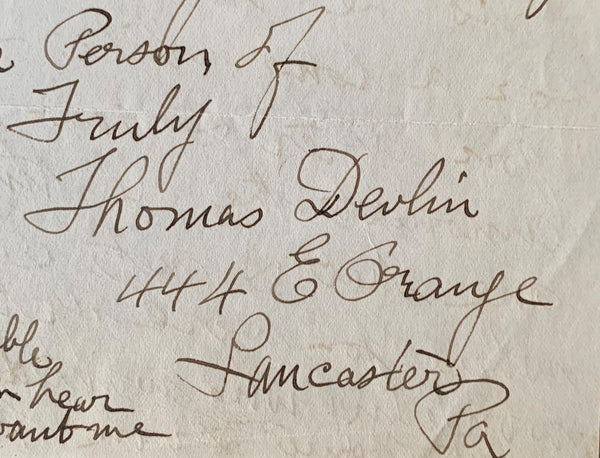 Person of
Truly
Thomas Devlin
444 E Orange
Lancaster
Pa
hear
want me